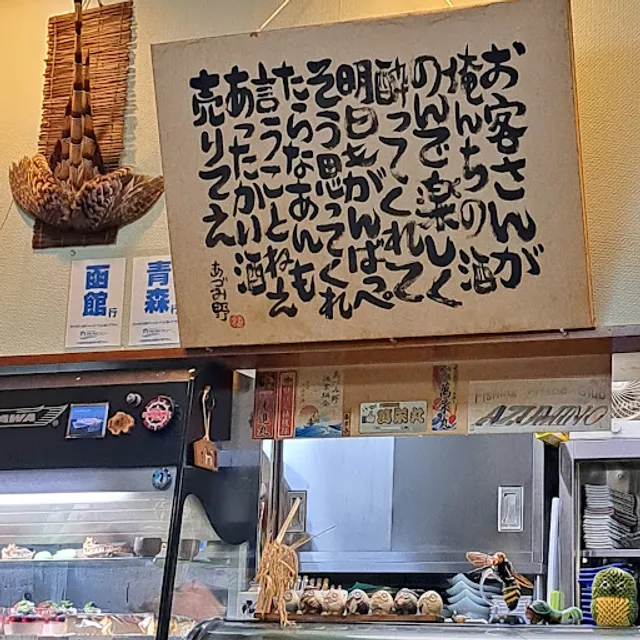 お客さんが
俺んちの酒
のんで楽しく
酔ってくれて
明日もがんばっぺ
そう思ってくれ
たらなあんも
言うことねえ
あったかい酒
売りてえ
あづみ野
函館行
青森行
萬栄丸
Fishing Club
AZUMINO